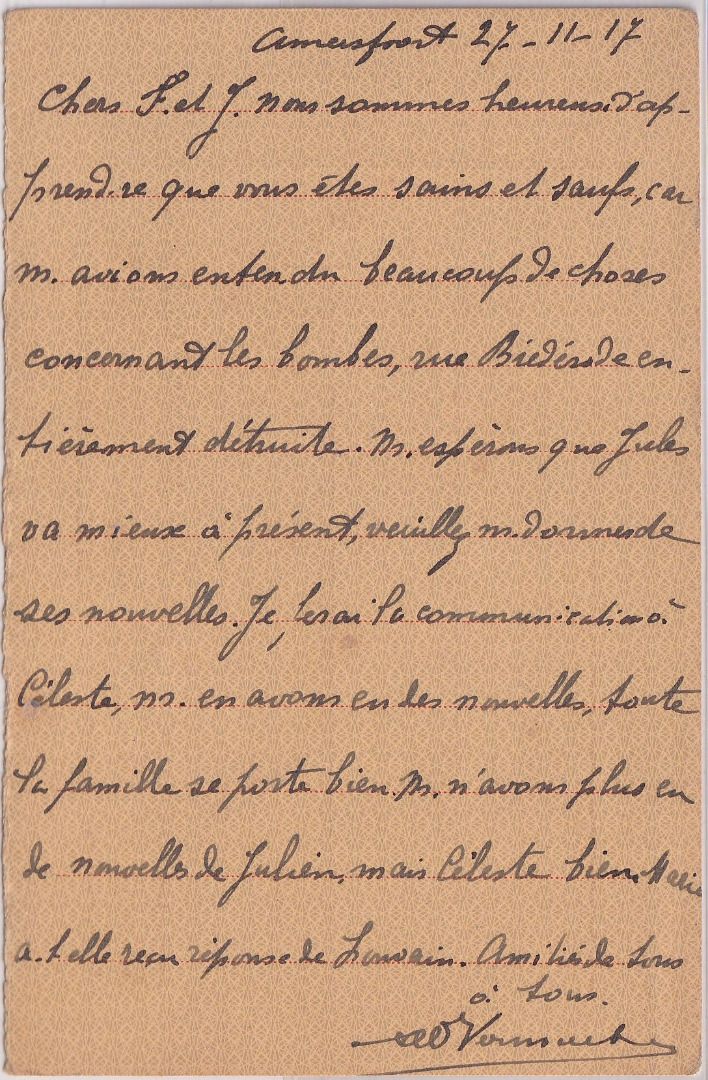 Amersfoort 27-11-17
Chers F. et J. Nous sommes heureux d'ap-
prendre que vous êtes sains et saufs, car
n. avions entendu beaucoup de choses
concernant les bombes, rue en-
tièrement détruite. N. espérons que Jules
va mieux à présent, veuillez n. donner de
ses nouvelles. Je ferai la communication à
Céleste, n. en avons eu des nouvelles, toute
la famille se porte bien. N. n'avons plus eu
de nouvelles de Julien, mais Céleste bien. Marie
a-t-elle reçu réponse de Louvain. Amitiés de tous
à tous.